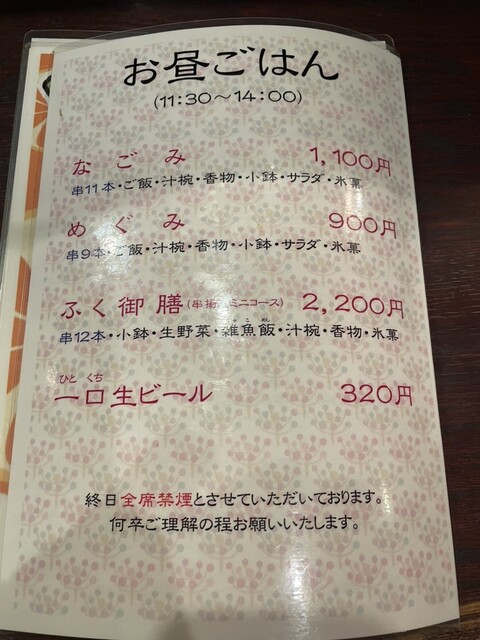 お昼ごはん
(11:30～14:00)
なごみ 1,100円
串11本・ご飯・汁椀・香物・小鉢・サラダ・氷菓
めぐみ 900円
串9本・ご飯・汁椀・香物・小鉢・サラダ・氷菓
ふく御膳(串揚げミニコース) 2,200円
串12本・小鉢・生野菜・雑魚飯・汁椀・香物・氷菓
ひと くち
一口生ビール 320円
終日全席禁煙とさせていただいております。
何卒ご理解の程お願いいたします。